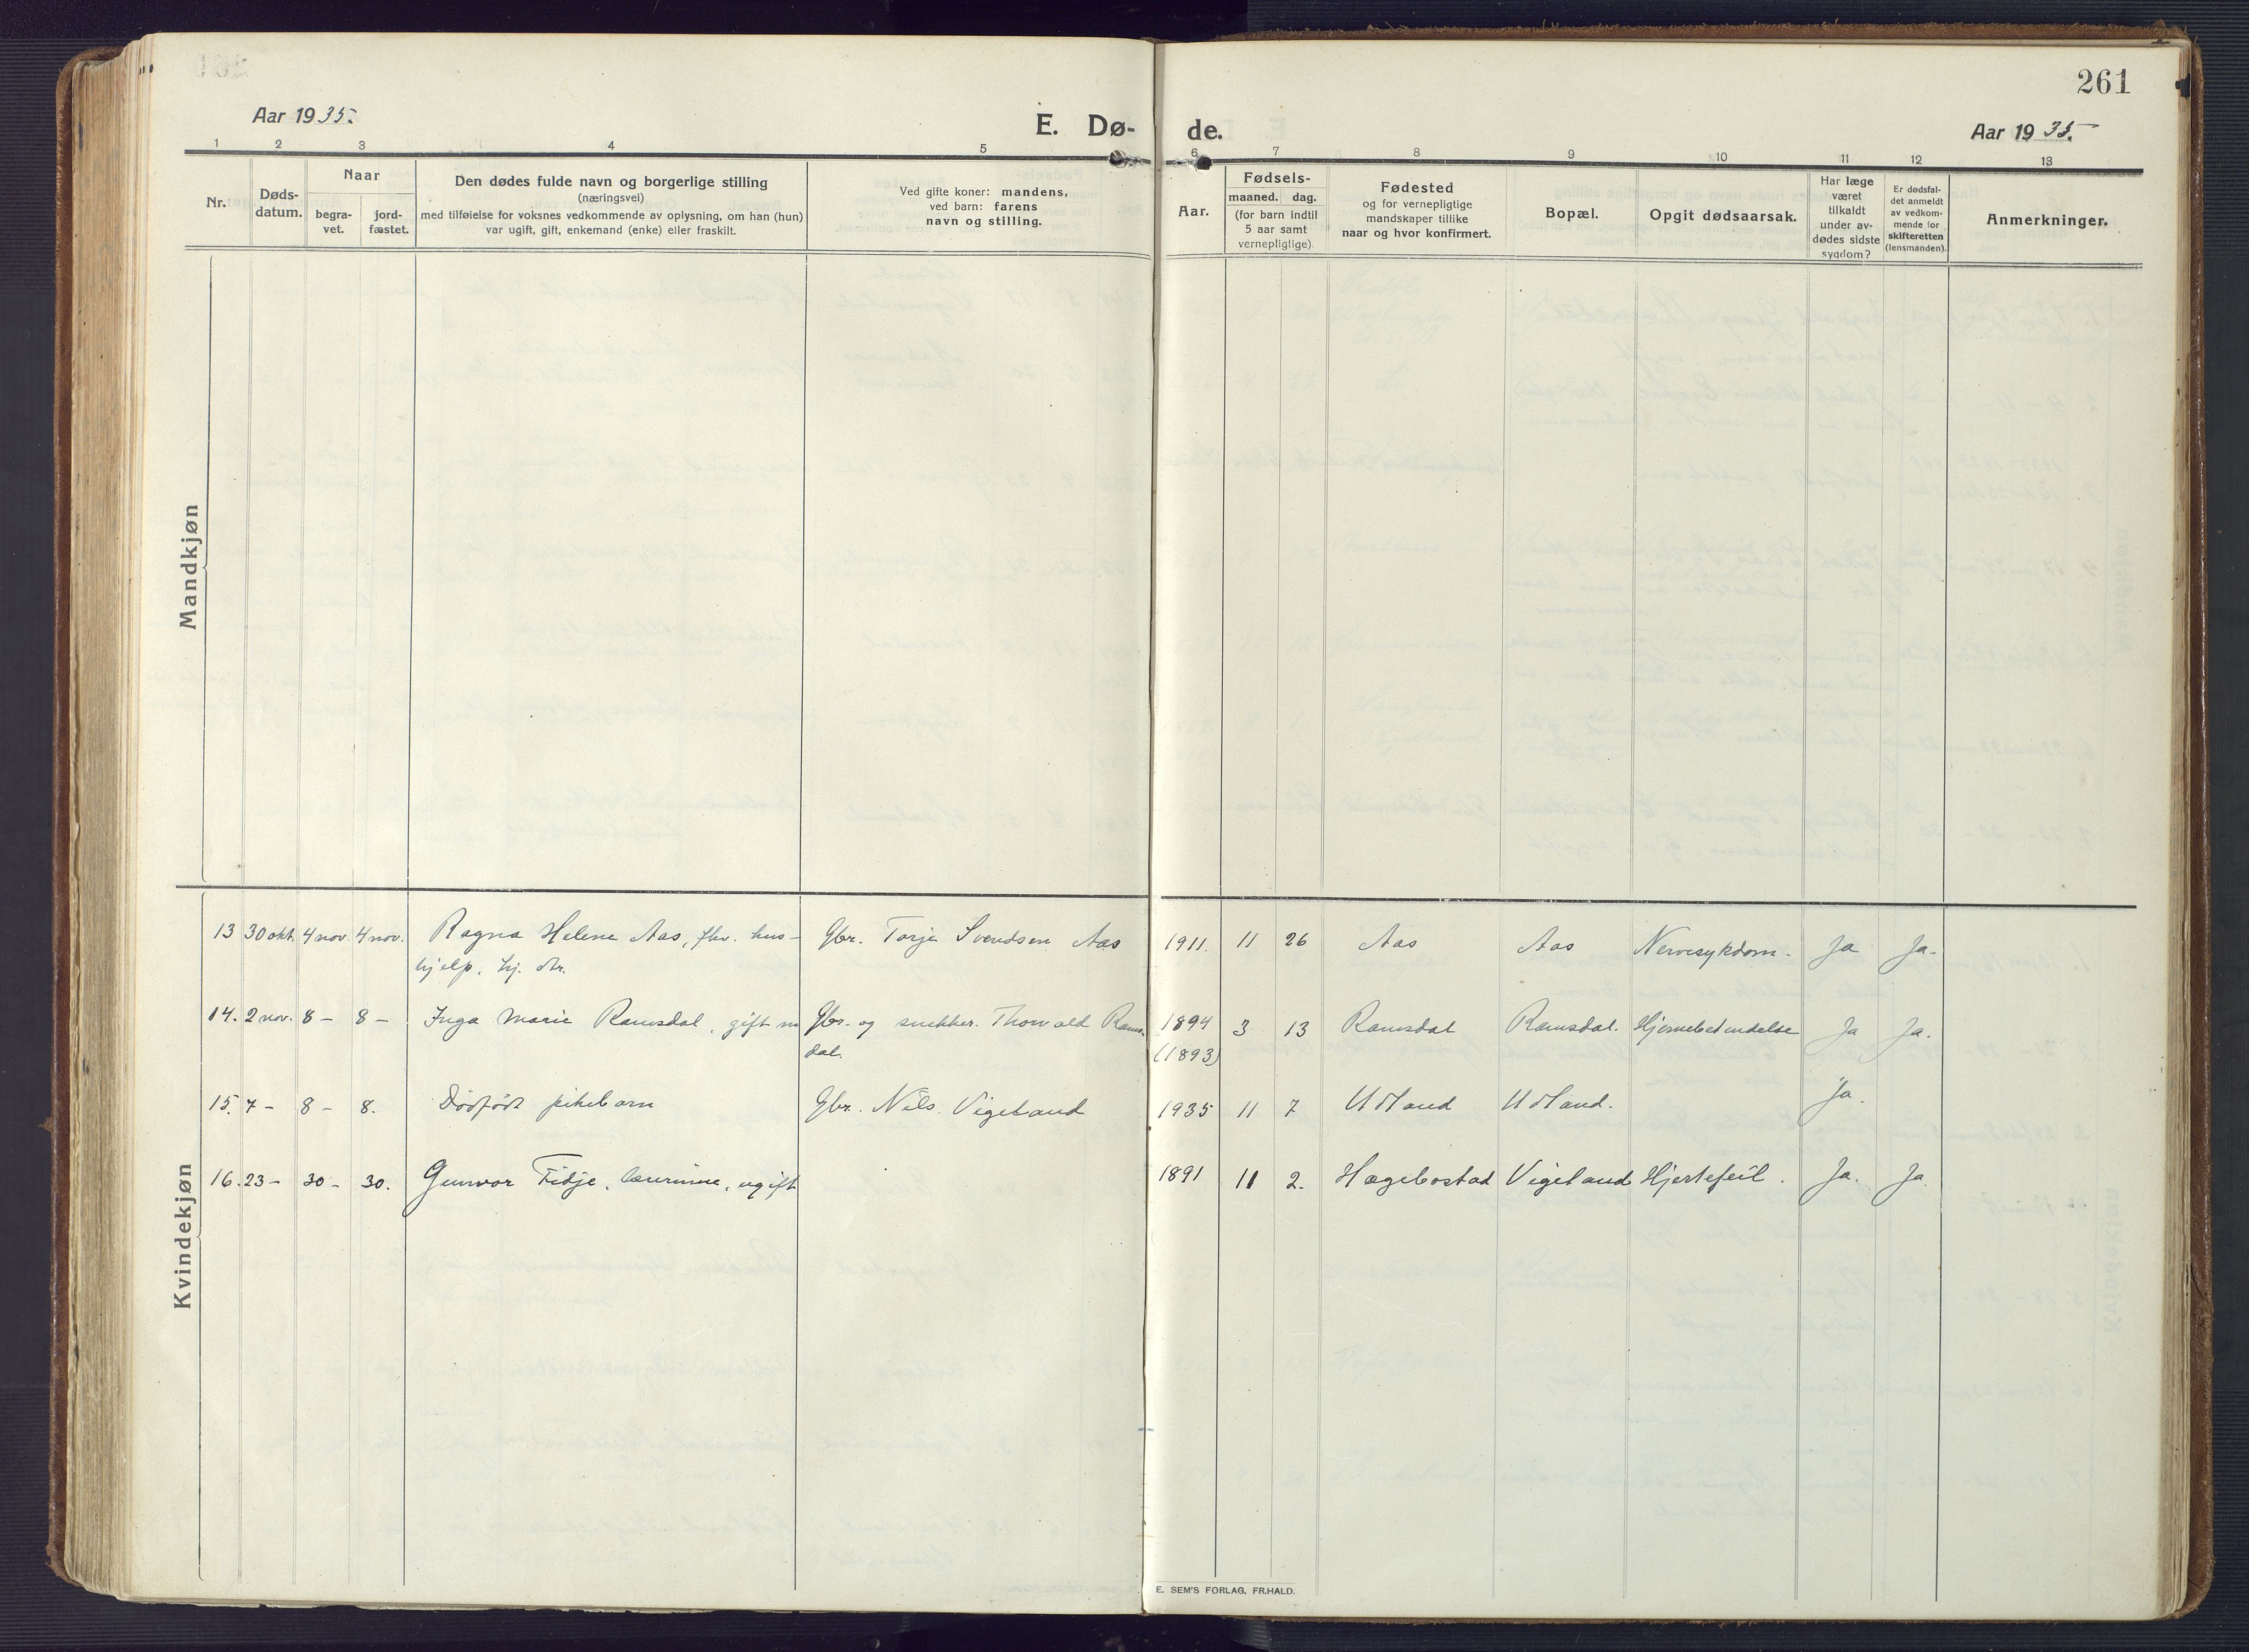 261
Aar 1935.
E. Dø-
de.
Aar 1935.
1 2 3 4 5 6 7 8 9 10 11 12 13
Nr.
Døds-
datum.
Naar
begra-
vet.
jord-
fæstet.
Den dødes fulde navn og borgerlige stilling
(næringsvei)
med tilføielse for voksnes vedkommende av oplysning, om han (hun)
var ugift, gift, enkemand (enke) eller fraskilt.
Ved gifte koner: mandens,
ved barn: farens
navn og stilling.
Aar.
Fødsels-
maaned. dag.
(for barn indtil
5 aar samt
vernepligtige)
Fødested
og for vernepligtige
mandskaper tillike
naar og hvor konfirmert.
Bopæl.
Opgit dødsaarsak.
Har læge
været
tilkaldt
under av-
dødes sidste
sygdom?
Er dødsfal-
det anmeldt
av vedkom-
mende for
skifteretten
(lensmanden).
Anmerkninger.
Mandkjøn
Kvindekjøn
13 30 okt. 4 nov. 4 nov. Ragna Helene Aas, fhv. hus- Gbr. Torje Svendsen Aas 1911. 11 26 Aas Aas Nervesykdom. Ja Ja.
hjelp. hj. dtr.
14. 2 nov. 8 - 8 - Inga Marie Ramsdal, gift m Gbr. og snekker. Thorvald Rams- 1894 3 13 Ramsdal Ramsdal. Hjernebetendelse Ja Ja.
dal. (1893)
15. 7 - 8 - 8. Dødfødt pikebarn Gbr. Nils Vigeland 1935 11 7 Udland Udland. Ja.
16. 23 - 30 - 30. Gunvor Fidje, lærerinne, ugift 1891 11 2. Hægebostad Vigeland Hjertefeil. Ja. Ja.
E. SEM'S FORLAG, FR.HALD.